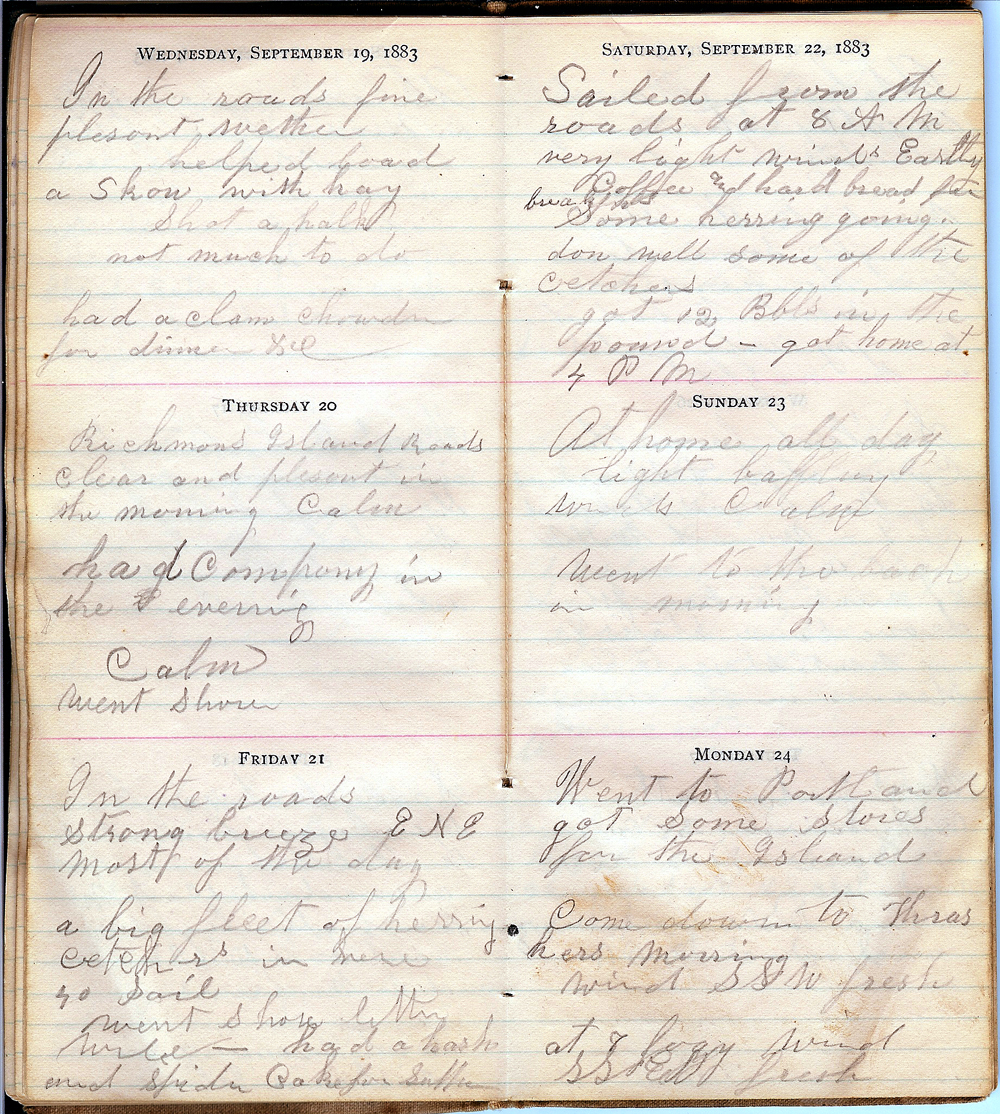 WEDNESDAY, SEPTEMBER 19, 1883
In the roads fine
plesont wether
helped load
a Skow with hay
Shot a halk
not much to do
had a clam Chowdr
for dinner &c
THURSDAY 20
Richmons Island Roads
Clear and plesont in
the morning Calm
had Company in
the evening
Calm
went Shore
FRIDAY 21
In the roads
Strong breeze E N E
Most of the day
a big fleet of herring
cetchrs in here
40 Sail
went Shore letter
had a hash
and Spider Cake for Supper
SATURDAY, SEPTEMBER 22, 1883
Sailed from the
roads at 8 A M
very light winds Eastly
Coffee and hard bread for
breakfast
Some herring going
don well some of the
Cetchers
got 12 Bbls in the
pound - got home at
4 P M
SUNDAY 23
At home all day
light baffling
winds Calm
Went to the
in morning
MONDAY 24
Went to Portland
got some stores
for the Island
Come down to Thras
hers morning
wind S S W fresh
at 7 fogy wind
fresh